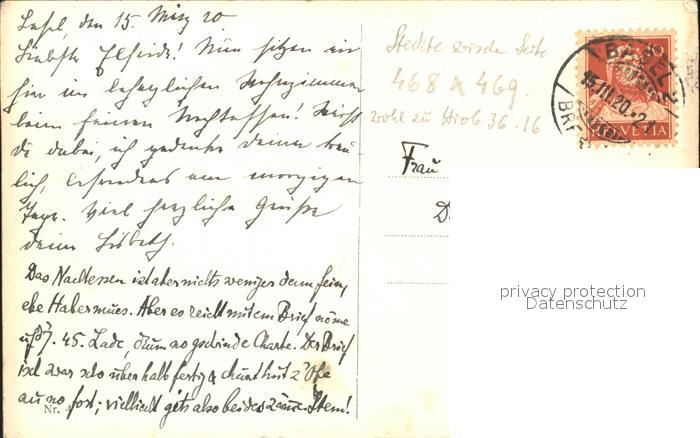 Basel, den 15. März 20
Liebste Elfriede! Nun sitzen wir
hier im behaglichen Wohnzimmer
beim feinen Nachtessen! Nicht
du dabei, ich gedenke deiner
lich, besonders am morgigen
Tage. Viel herzliche Grüsse
deine Lisbeth.
Das Nachtessen ist aber nichts weniger denn fein,
ebe Habermues. Aber es reicht mit em Brief nöme
uf 7.45. Lade, drum no gschwinde Charte. Der Brief
isch zwar scho über halb fertig & chunt hüt z'Obe
au no fort; viellicht gits also beides zäme. Item!
Nr. 4
Steckte zwischen Seite
468 & 469.
wohl zu Hiob 36.16
BASEL
15.III.20.
BRF.
10
HELVETIA
Frau
D
privacy protection
Datenschutz